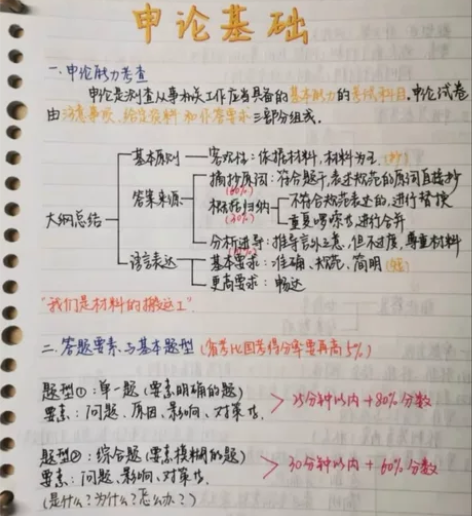 申论基础
一、申论能力考查
申论是测查从事机关工作应当具备的基本能力的考试科目。申论试卷
由注意事项、给定资料和作答要求三部分组成。
大纲总结
基本原则 — 客观性：依据材料，材料为王。(抄)
答案来源
摘抄原词：符合题干，表述规范的原词直接抄
(60%)
概括归纳
(30%)
不符合规范表述的，进行替换
重复啰嗦的，进行合并
分析推导：推导言外之意，但不过度，尊重材料
(10%)
语言表达
基本要求：准确、规范、简明
更高要求：畅达
"我们是材料的搬运工"
二、答题要素与基本题型(省考比国考得分率要再高5%)
题型①：单一题(要素明确的题)
要素：问题、原因、影响、对策等。
> 15分钟以内 + 80%分数
题型②：综合题(要素模糊的题)
要素：问题、影响、对策等。
(是什么？为什么？怎么办？)
> 30分钟以内 + 60%分数